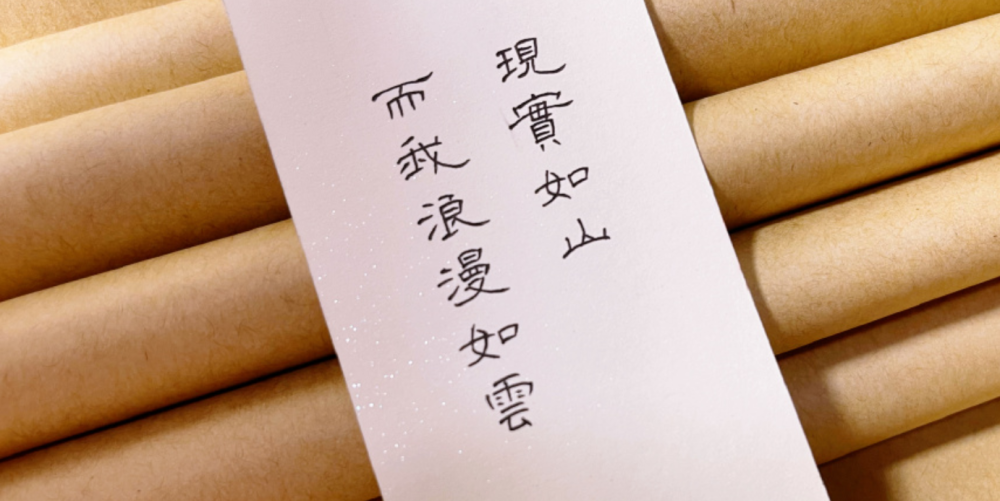 現實如山
而我浪漫如雲